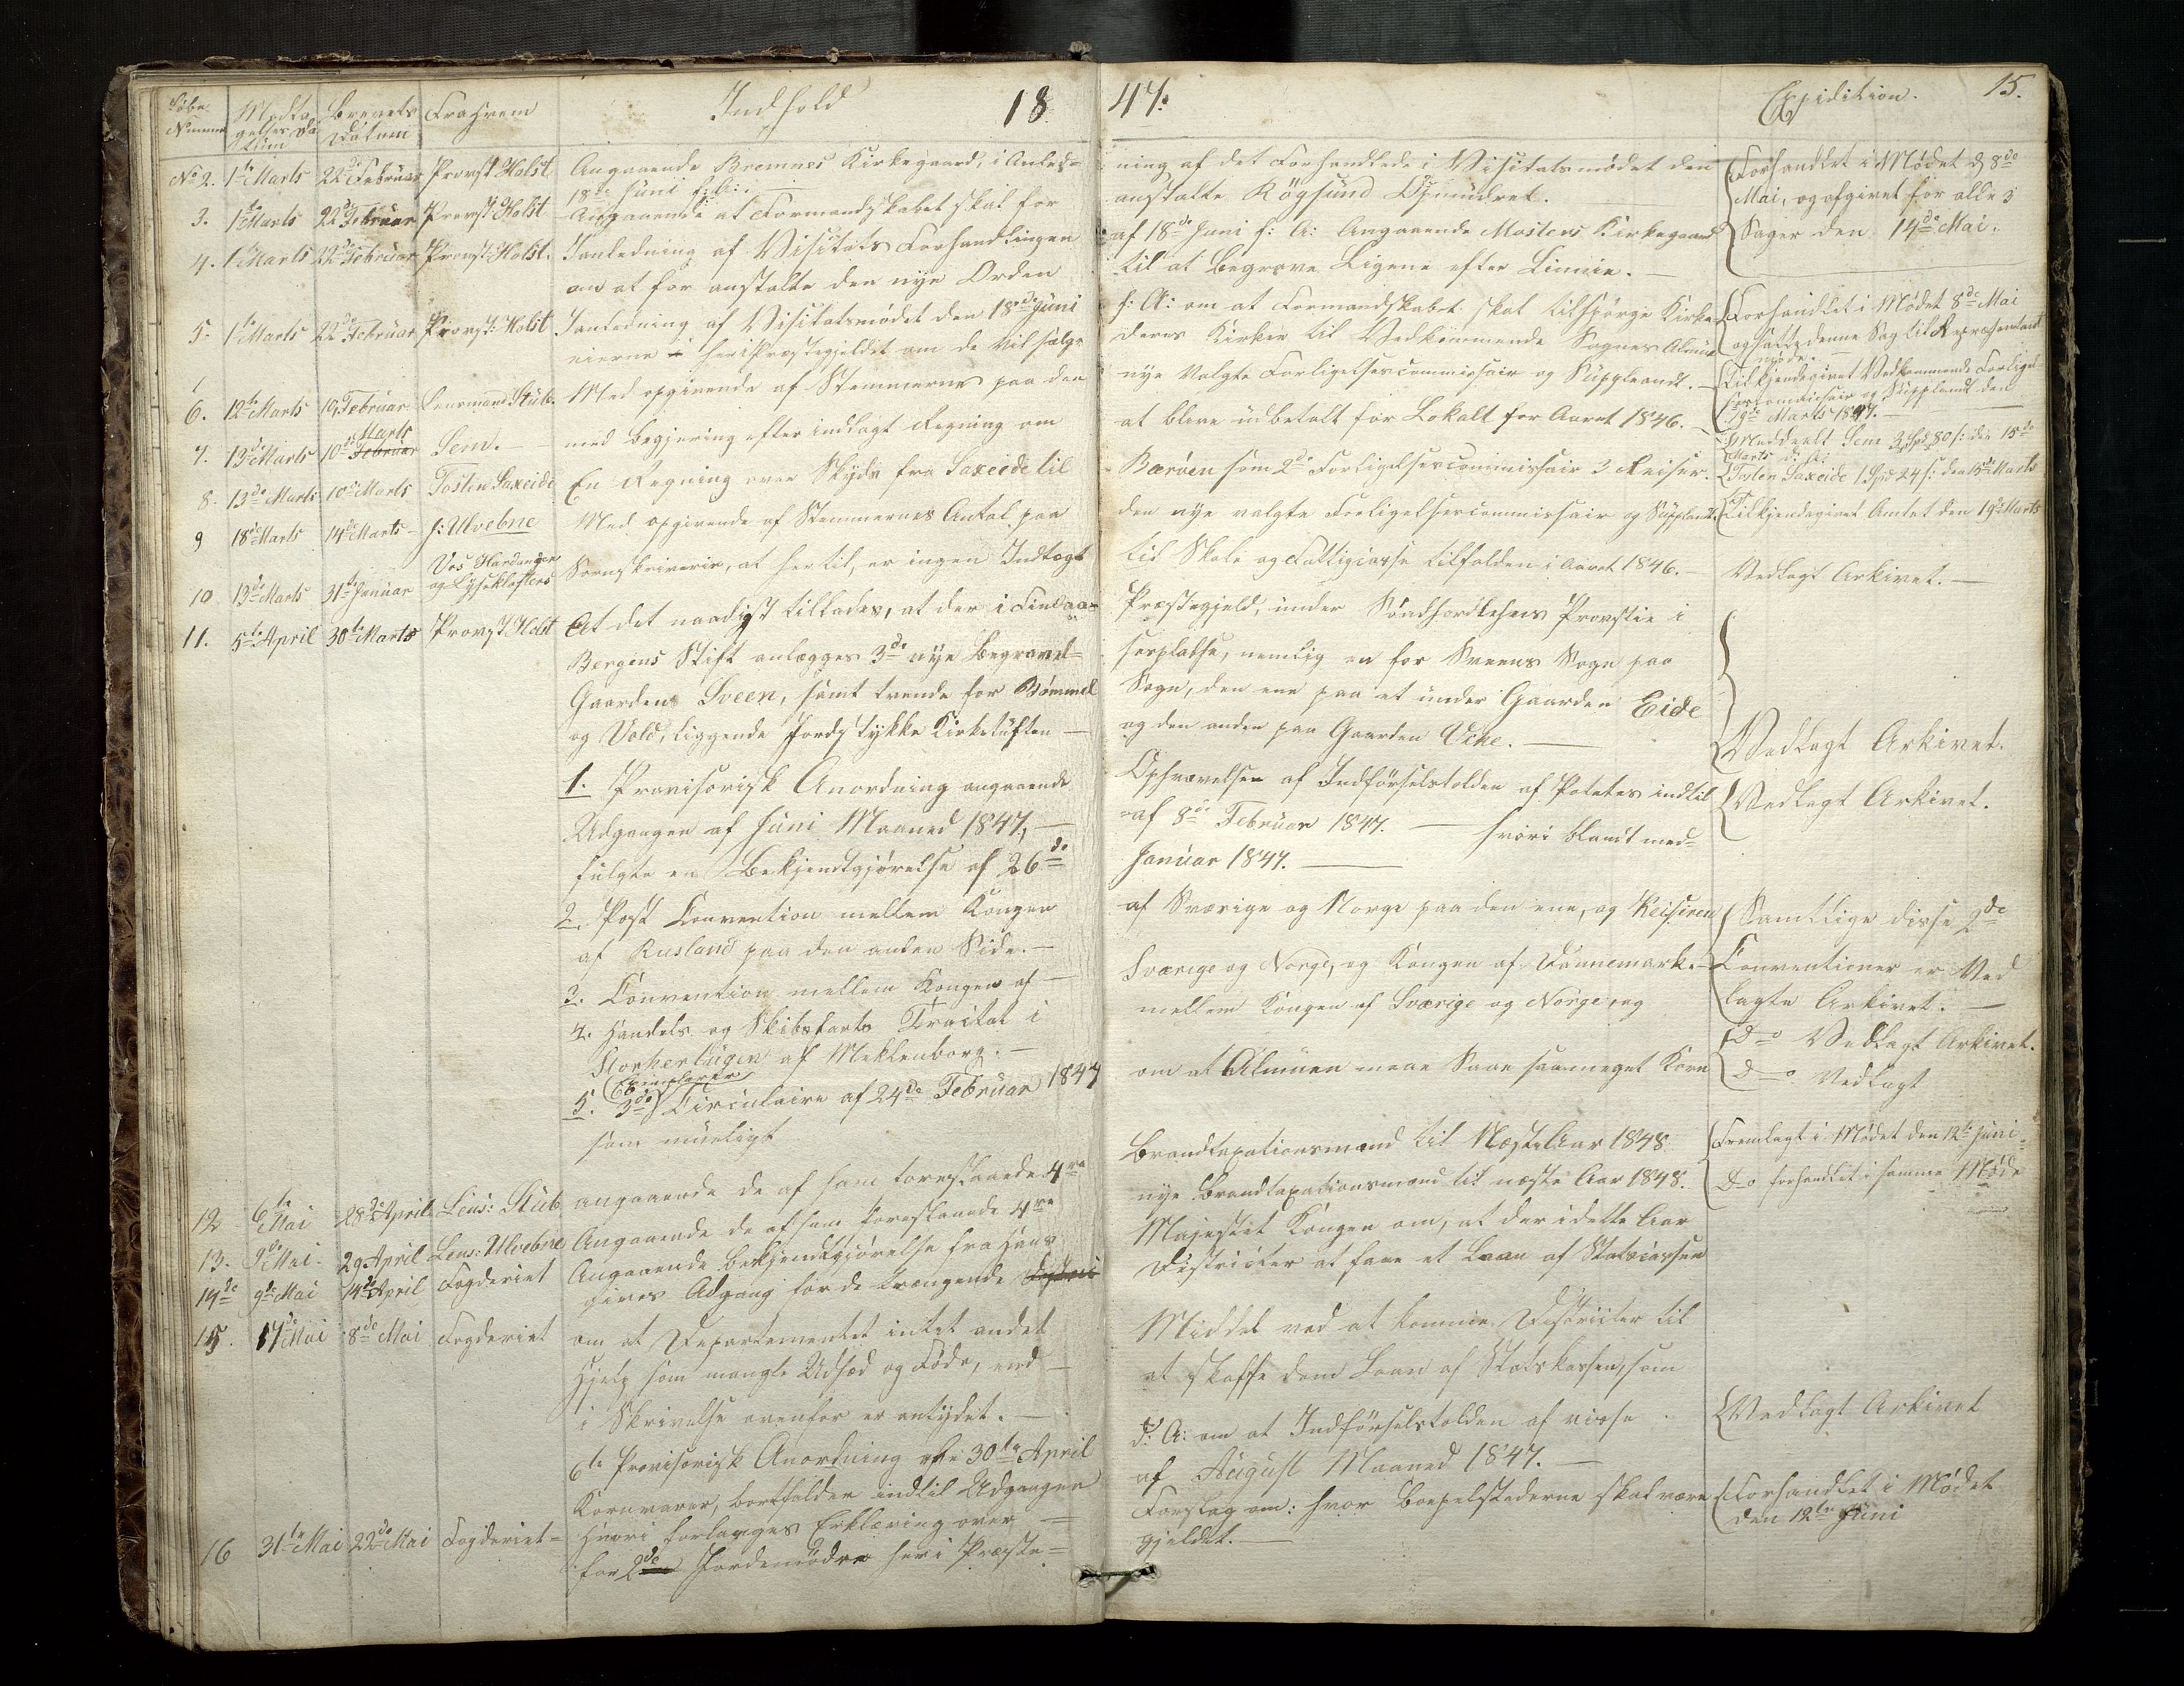 Løbe Nummer
Modtagelses Datum
Brevets Datum
Fra Hvem
Indhold
1847.
Expidition.
15.
No 2. 1te Marts 22de Februar Provst Holst Angaaende Bremnes Kirkegaard, i Anled= ning af det Forhandlede i Visitatsmødet den
18de Juni f: A:.
3. 1te Marts 22de Februar Provst Holst Angaaende at Formandskabet skal for anstalte Røgsund Opmudret.
Forhandlet i Mødet d 8de
Mai, og afgivet for alle 3
Sager den 14de Mai.
4. 1te Marts 22de Februar Provst Holst. Ianledning af Visitats Forhandlingen af 18de Juni f: A: Angaaende Mosters Kirkegaard
om at for anstalte den nye Orden til at begrave Ligene efter Linnie.
5. 1te Marts 22de Februar Provst: Holst Ianledning af Visitatsmødet den 18de Juni f: A: om at Formandskabet skal tilspørge Kirke
eierne i heri Præstegjeldet om de vil sælge deres Kirker til Vedkommende Sognes Almue
Forhandlet i Mødet 8de Mai
og satte denne Sag til Repræsentant
møde.
6. 12te Marts 19 Februar Lensmand Stub. Med opgivende af Stemmerne paa den nye Valgte Forligelsescommissair og Suppleandt.
Tilkjendegivet Vedkommende Forligel
sescommissair og Suppleandt den
19de Marts 1847.
7. 13de Marts 10de Februar Marts Sem. med begjering efter indlagt Regning om at blive udbetalt for Lokalt for Aaret 1846.
Meddeelt Sem 3 Spd 80 s: den 15de
Marts
8. 13de Marts 10de Marts Tosten Saxeide En Regning over Skyds fra Saxeide til Børøen som 2de Forligelsescommissair 3 Reiser.
Tosten Saxeide 1 Spd 24 s: den 15de Marts
9 18de Marts 14de Marts J: Ulvebne Med opgivende af Stemmernes Antal paa den nye valgte Forligelsescommissair og Suppleandt.
Tilkjendegivet Amtet den 19de Marts
10 13de Marts 31te Januar Vos Hardanger og Lyseklosters Sorenskriverie, at hertil, er ingen Indtægt til Skole og Fattigcasse tilfalden i Aaret 1846.
Vedlagt Arkivet.
11. 5te April 30te Marts Provst Holst At det naadigst tillades, at der i Findaas Præstegjeld, under Søndhordlehns Provstie i
Bergens Stift anlægges 3de nye Begravel= sespladse, nemlig en for Sveens Sogn paa
Gaarden Sveen, samt tvende for Bømmel Sogn, den ene paa et under Gaarden Eide
og Vold, liggende Jordstykke Kirketuften og den anden paa Gaarden Vike.
Vedlagt Arkivet.
1. Provisorisk Anordning angaaende Ophævelsen af Indførselstolden af Potetes indtil
Udgangen af Juni Maaned 1847, af 8de Februar 1847. hvori blandt med=
fulgte en Bekjendtgjørelse af 26de Januar 1847.
Vedlagt Arkivet.
2. Post Convention mellem Kongen af Sværige og Norge paa den ene, og Keiseren
af Rusland paa den anden Side.
3. Convention mellem Kongen af Sværige og Norge, og Kongen af Dannemark.
Samtlige disse 2de
Conventioner er Ved
lagte Arkivet.
4. Handels og Skibsfarts Tractat i mellem Kongen af Sværige og Norge, og
Storhertugen af Meklenborg.
Do Vedlagt Arkivet.
5. 3de Exemplarer Circulaire af 24de Februar 1847 om at Almuen maae Saae saameget Korn
som mueligt
Do Vedlagt
12 6te Mai 28de April Lens: Stub angaaende de af ham foreslaaede 4re Brandtaxationsmænd til Næste Aar 1848
Fremlagt i Mødet den 12te Juni
13. 9de Mai. 29 April Lens: Ulvebne Angaaende de af ham foreslaaede 4re nye Brandtaxationsmænd til næste Aar 1848.
Do forhandlet i samme Møde
14de 9de Mai 14de April Fogderiet Angaaende Bekjendtgjørelse fra Hans Majestet Kongen om, at der i dette Aar
gives Adgang for de trængende Districter at faae et Laan af Statscassen
15. 17de Mai 8de Mai Fogderiet om at Departementet intet andet Middel ved at komme Districter til
Hjelp som mangle Udsæd og Føde, end at skaffe dem Laan af Statskassen, som
i Skrivelse ovenfor er antydet.
6te Provisorisk Anordning af 30te April d: A: om at Indførselstolden af visse
Kornvarer, bortfalder indtil Udgangen af August Maaned 1847.
Vedlagt Arkivet
16 31te Mai 22de Mai Fogderiet Hvori forlanges Erklæring over Forslag om: hvor Boepelstederne skal være
for 2de Jordemødre her i Præste= gjeldet.
Forhandlet i Mødet
den 12te Juni